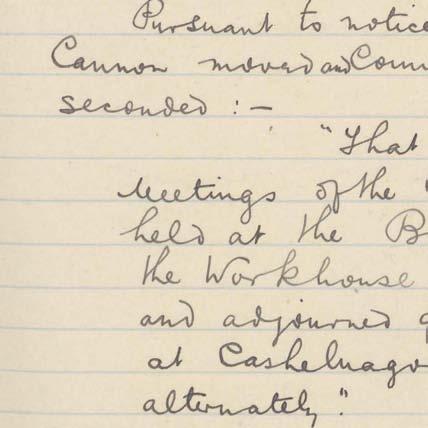 Pursuant to notice
Cannon moved and Coun
seconded :-
"That
Meetings of the
held at the B
the Workhouse
and adjourned
at Cashelnago
alternately".